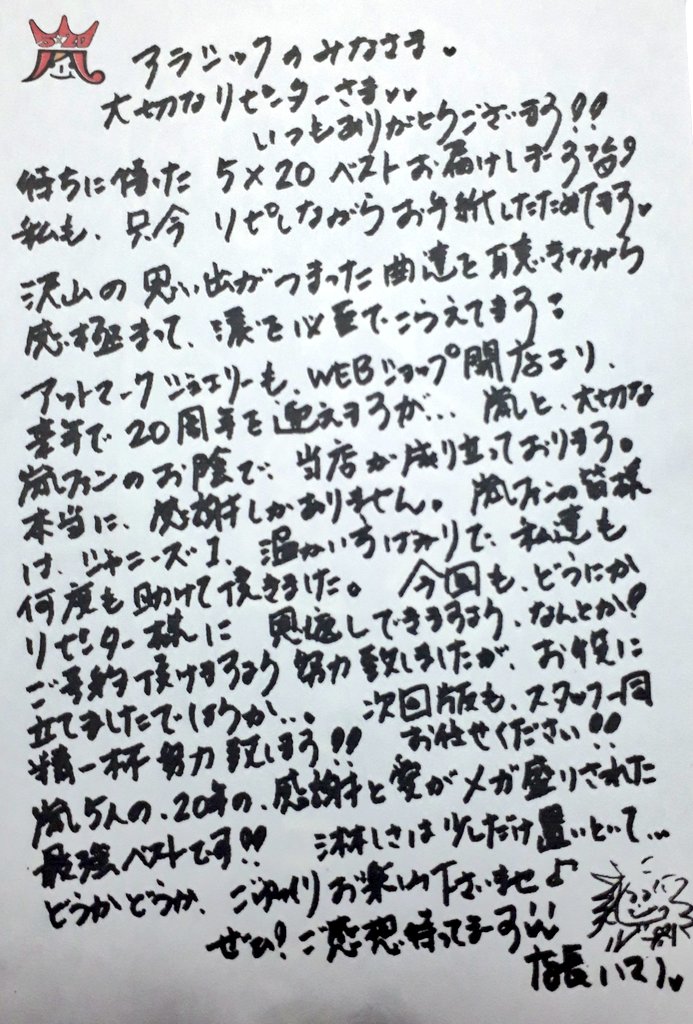 5×20
嵐
アラジックのみなさま♥
大切なリセンターさま♥♥
いつもありがとうございまする!!
待ちに待った 5×20 ベストお届けしまーする
私も、只今 リピしながらお手紙したためてまする♥
沢山の思い出がつまった曲達を聴きながら
感極まって、涙を必至でこらえてまする:
アットマークジュエリーも、WEBショップ開店より、
来年で20周年を迎えまするが... 嵐と、大切な
嵐ファンのお陰で、当店が成り立っておりまする。
本当に、感謝しかありません。 嵐ファンの皆様
は、ジャニーズ1、温かい 私達も
何度も助けて頂きました。 今回も、どうにか
リセンター様に 恩返しできまするよう、なんとか!
ご予約頂けまするよう 努力致しましたが、お役に
立てましたでしょうか...。 次回版も、スタッフ一同
精一杯努力致しまする!! お任せください!!
嵐5人の、20年の、感謝と愛がメガ盛りされた
最強ベストです!! 淋しさは少しだけ置いといて...
どうかどうか、ごゆるりお楽しみ下さいませ♪
ぜひ!ご感想待ってまーする!!
店長ハマリ♥